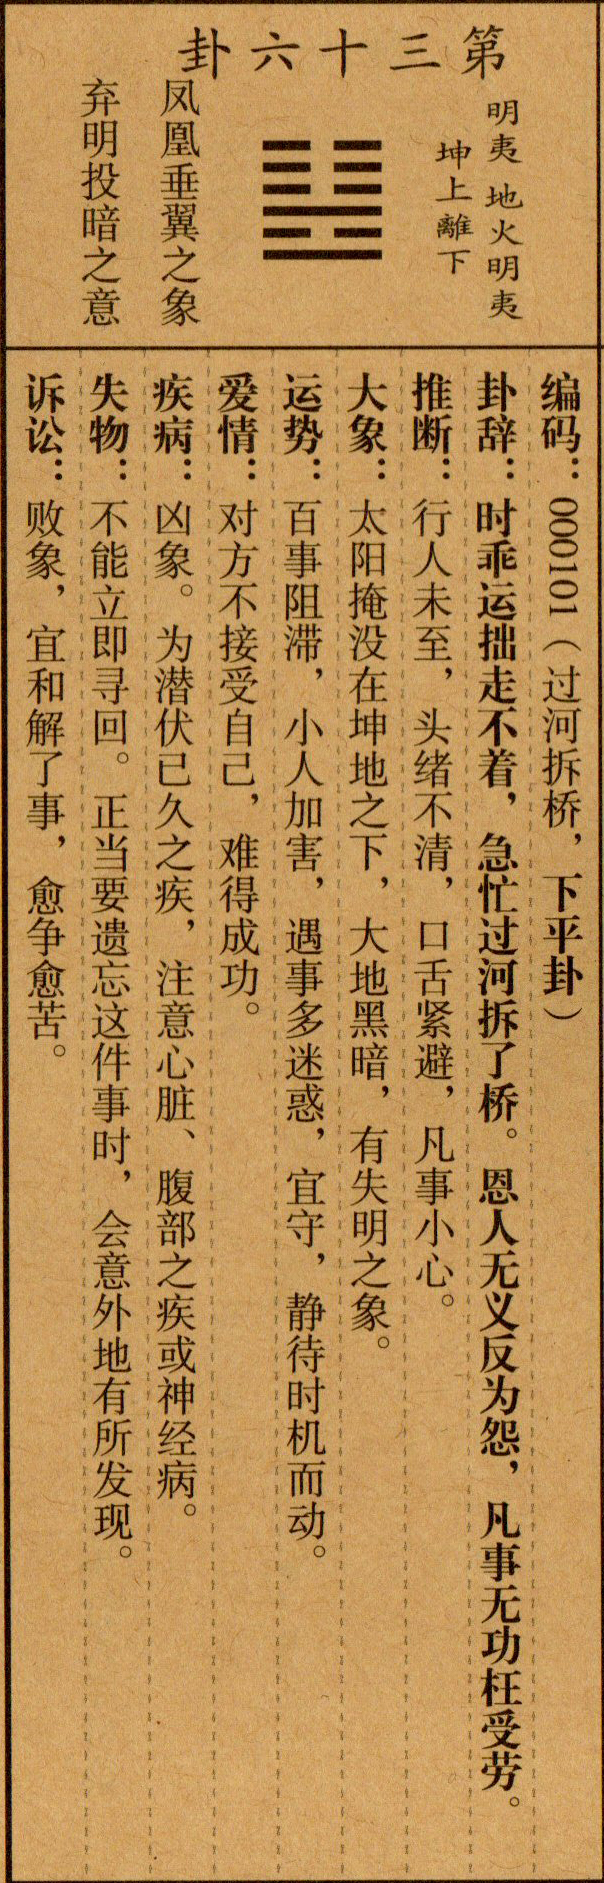 第三十六卦
明夷 地火明夷
坤上離下
凤凰垂翼之象
弃明投暗之意
编码：000101（过河拆桥，下平卦）
卦辞：时乖运拙走不着，急忙过河拆了桥。恩人无义反为怨，凡事无功枉受劳。
推断：行人未至，头绪不清，口舌紧避，凡事小心。
大象：太阳掩没在坤地之下，大地黑暗，有失明之象。
运势：百事阻滞，小人加害，遇事多迷惑，宜守，静待时机而动。
爱情：对方不接受自己，难得成功。
疾病：凶象。为潜伏已久之疾，注意心脏、腹部之疾或神经病。
失物：不能立即寻回。正当要遗忘这件事时，会意外地有所发现。
诉讼：败象，宜和解了事，愈争愈苦。